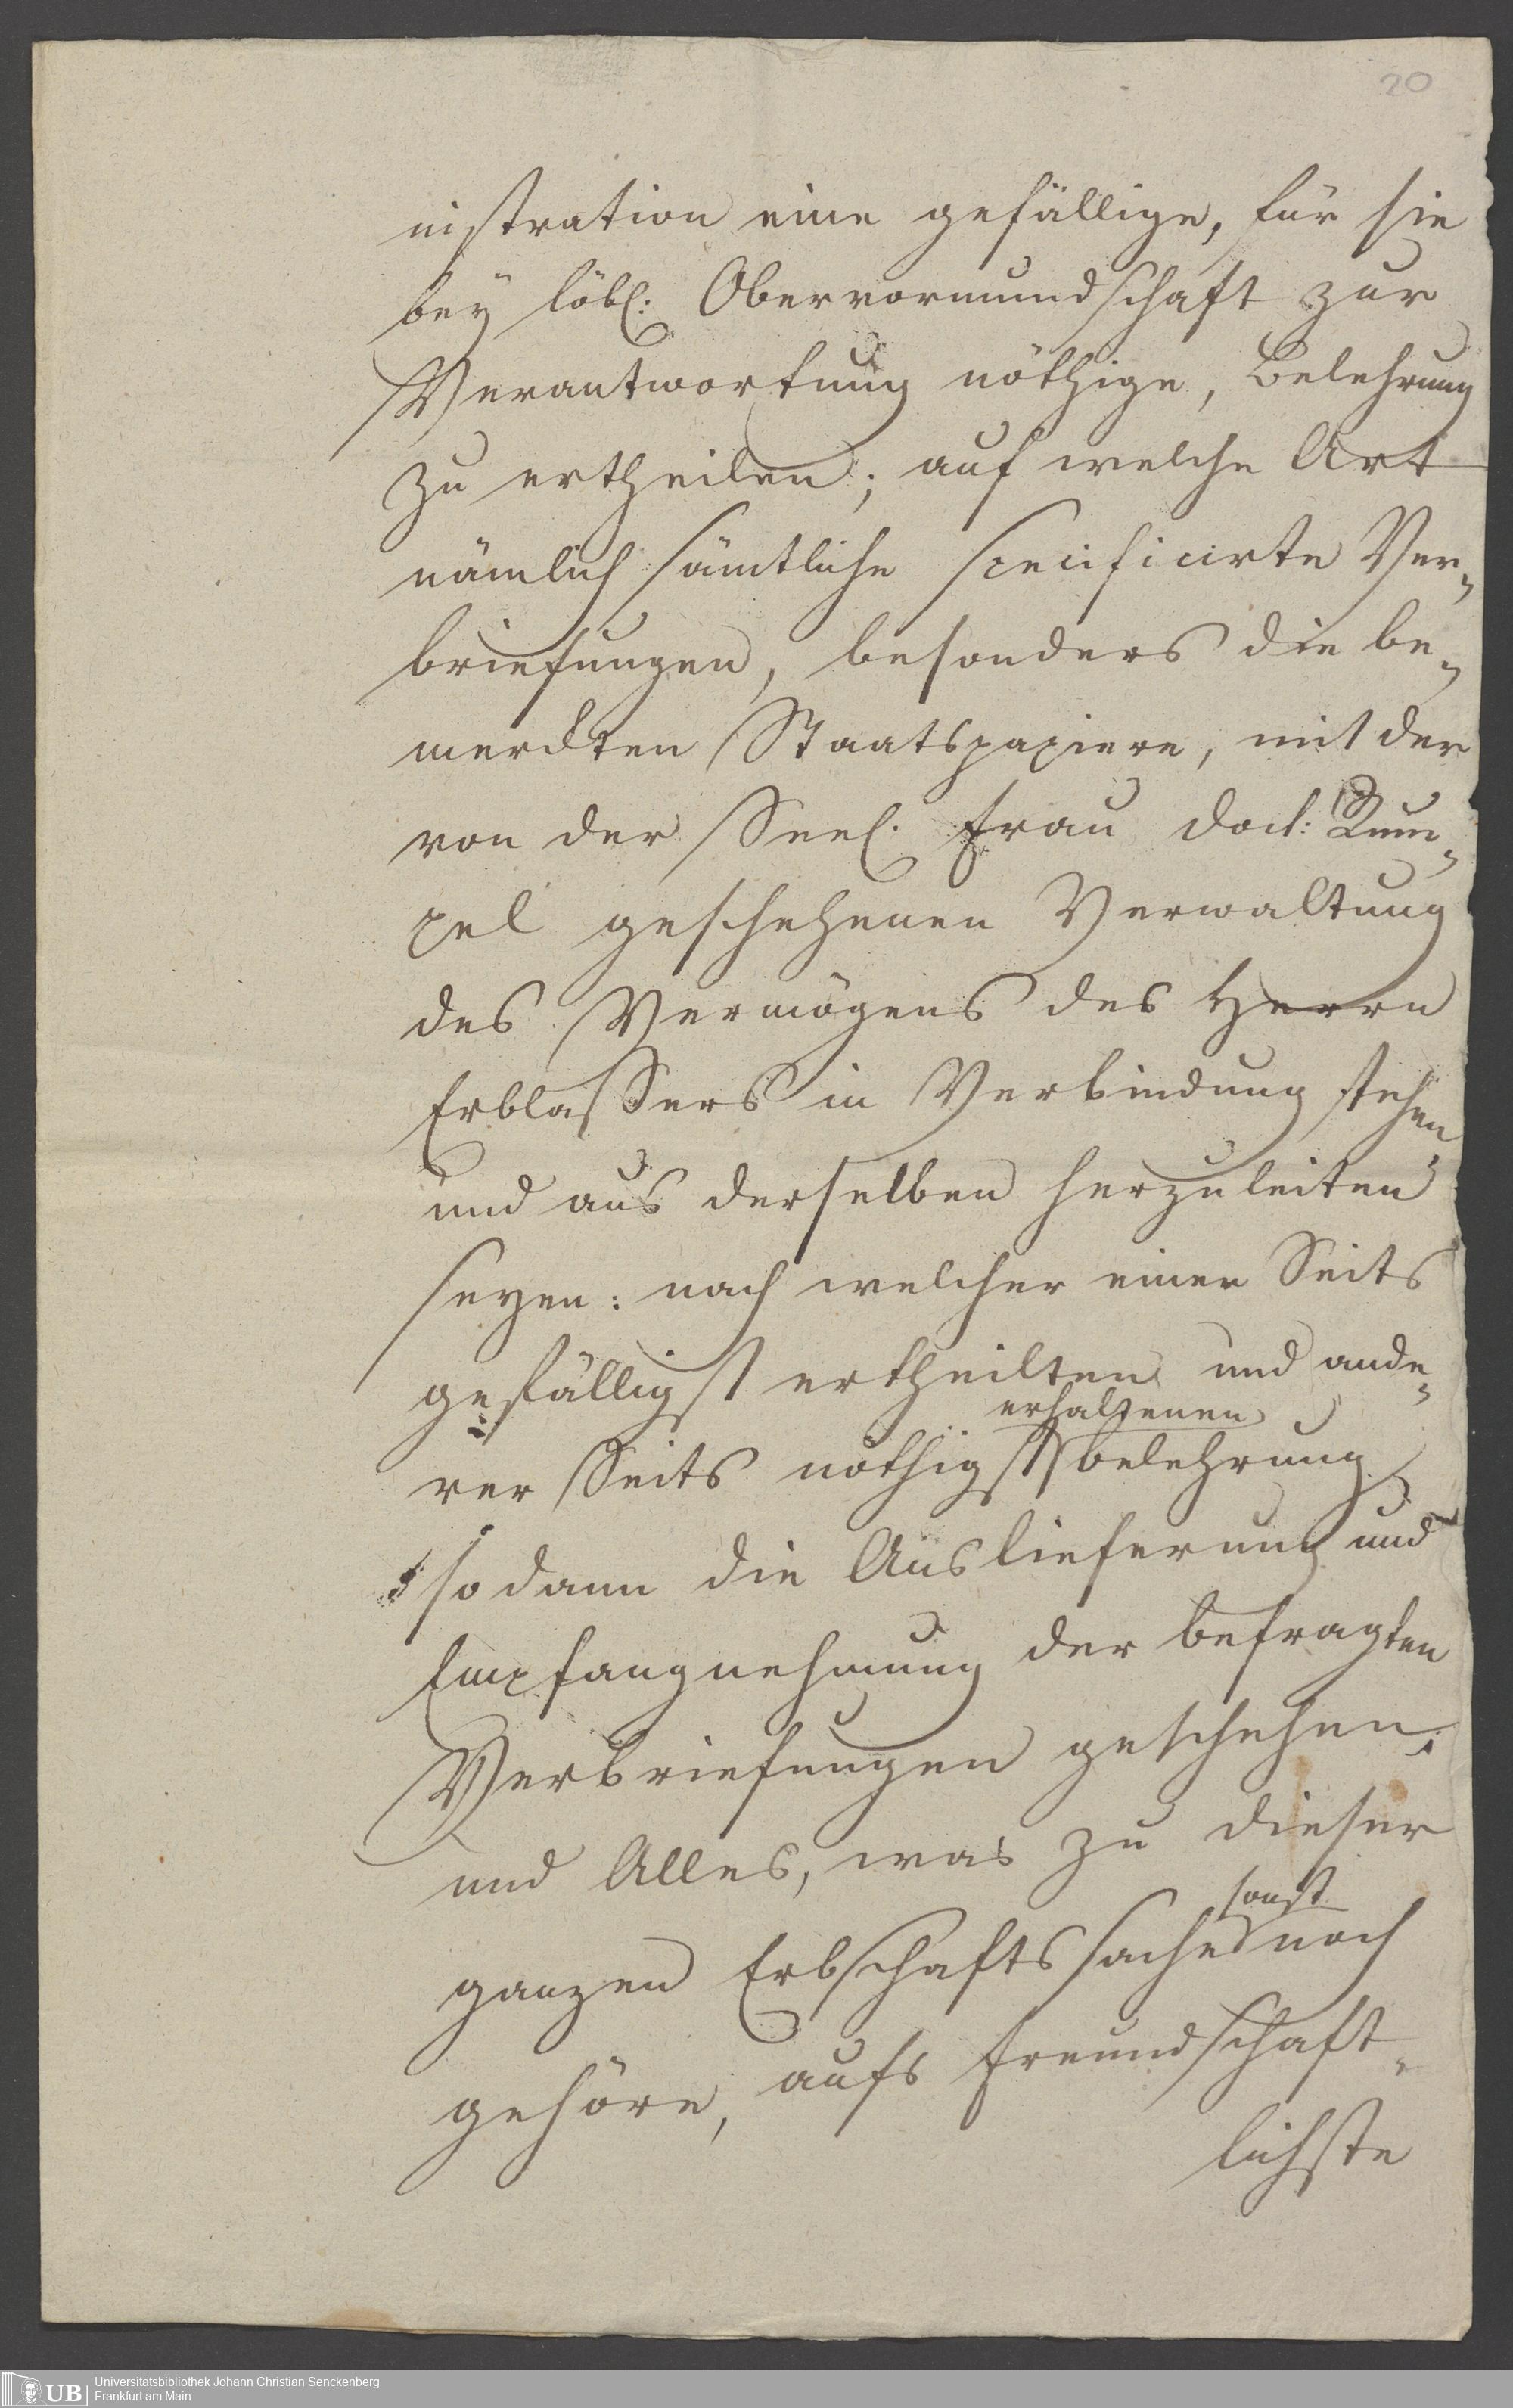 20
nistration eine gefällige, für sie
bey löbl: Obervormundschaft zur
Verantwortung nöthige, Belehrung
zu ertheilen; auf welche Art
nämlich sämtliche specificirte Ver-
briefungen, besonders die be-
merckten Staatspapiere, mit der
von der Seel. Frau Doct: Rum-
pel geschehenen Verwaltung
des Vermögens des Herrn
Erblassers in Verbindung stehen
und aus derselben herzuleiten
seyen: nach welcher einer Seits
gefälligst ertheilten und ande-
erhaltenen
rer Seits nöthigst belehrung
sodann die Auslieferung und
Empfangnehmung der befragten
Verbriefungen geschehen,
und Alles, was zu dieser
sonst
ganzen Erbschaftssache noch
gehöre, aufs freundschaft-
lichste
UB Universitätsbibliothek Johann Christian Senckenberg
Frankfurt am Main